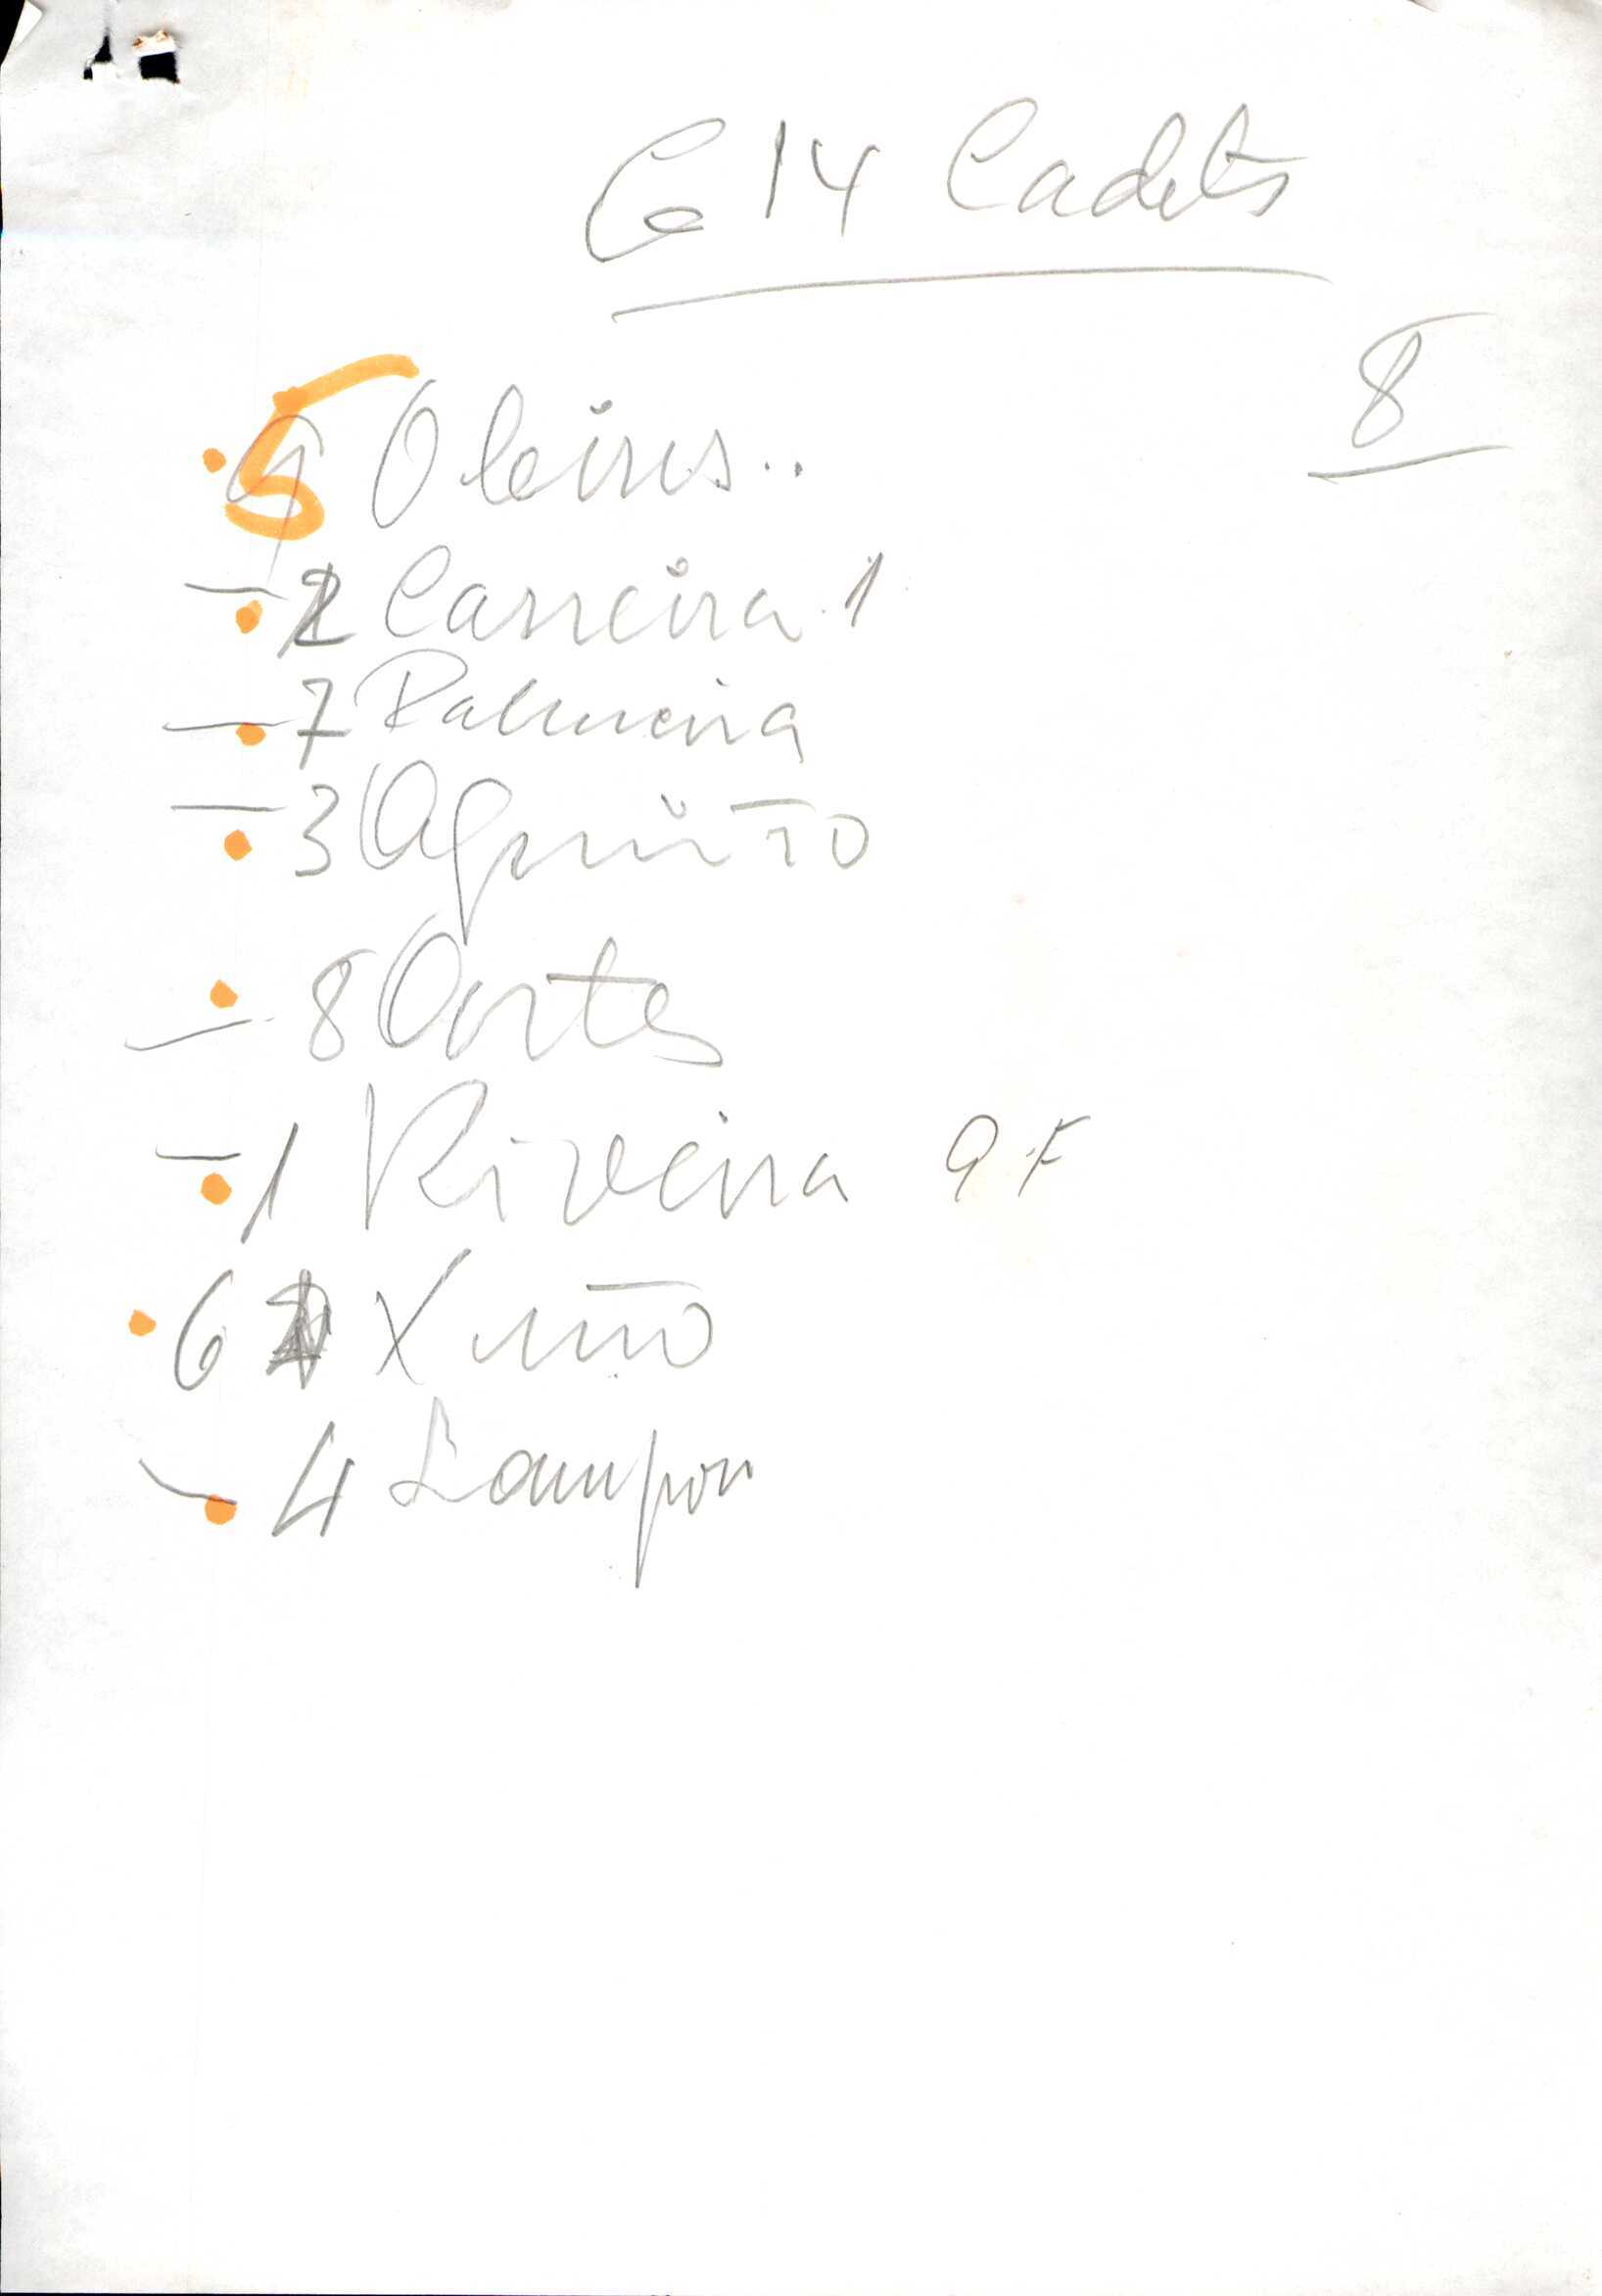 Ce 14 Cadets
8
5 Oleiros..
2 Carreira 1
7 Palmeira
3 Aguiño
8 Cortes
1 Riveira 9 F
6 Xuño
4 Lampon